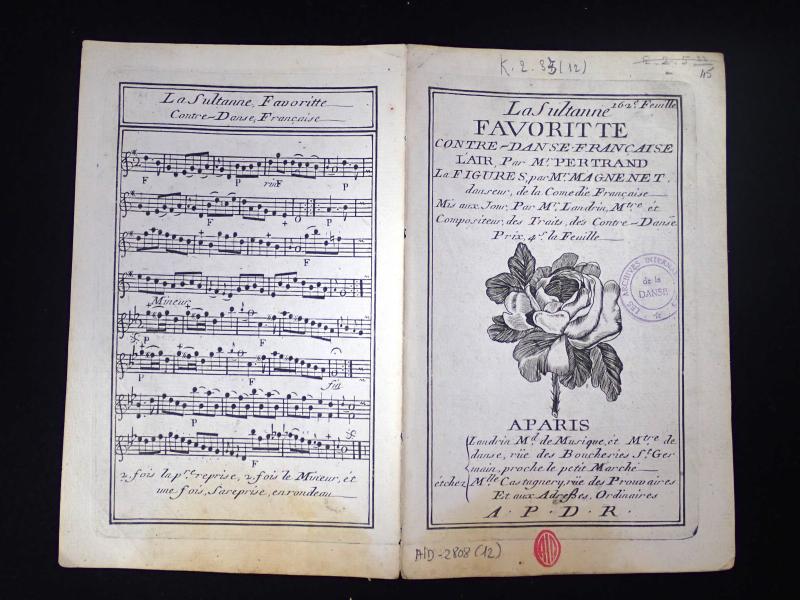 La Sultanne, Favoritte
Contre-Danse, Française
F P rinF P
F + O P
F
Mineur
P F
P F fin
P F
P F
2 fois la pre. reprise, 2 fois le Mineur, et
une fois, sa reprise, en rondeau
K. 2. 35 (12)
45
162e. Feuille
La Sultanne
FAVORITTE
CONTRE-DANSE-FRANCAISE
L'AIR, Par Mr. PERTRAND
La FIGURES, par Mr. MAGNENET.
danseur, de la Comedie Française
Mis aux Jour, Par Mr. Landrin, Mtre ét
Compositeur, des Traits, dés Contre-Danse
Prix, 4s. la Feuille
LES ARCHIVES INTERNAT
de la
DANSE
APARIS
Landrin Md. de Musique, ét Mtre. de
danse, rüe des Boucheries St. Ger
main, proche le petit Marché
étchez Mlle Castagnery, rüe des Prouvaires
Et aux Adresses, Ordinaires
A. P. D. R.
AID-2808 (12)
AID